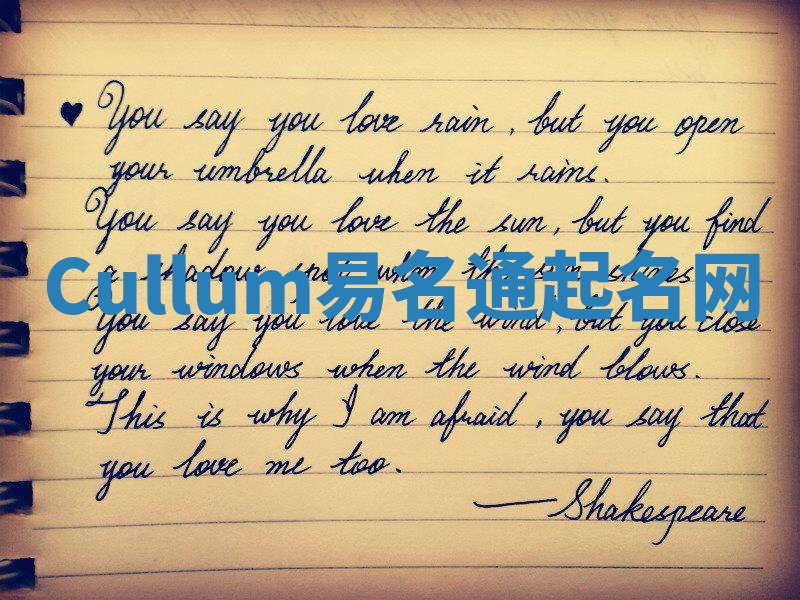 ♥ You say you love rain, but you open
your umbrella when it rains.
You say you love the sun, but you find
a shadow spot when the sun shines
Cullum易名通起名网
You say you love the wind, but you close
your windows when the wind blows.
This is why I am afraid, you say that
you love me too.
—Shakespeare